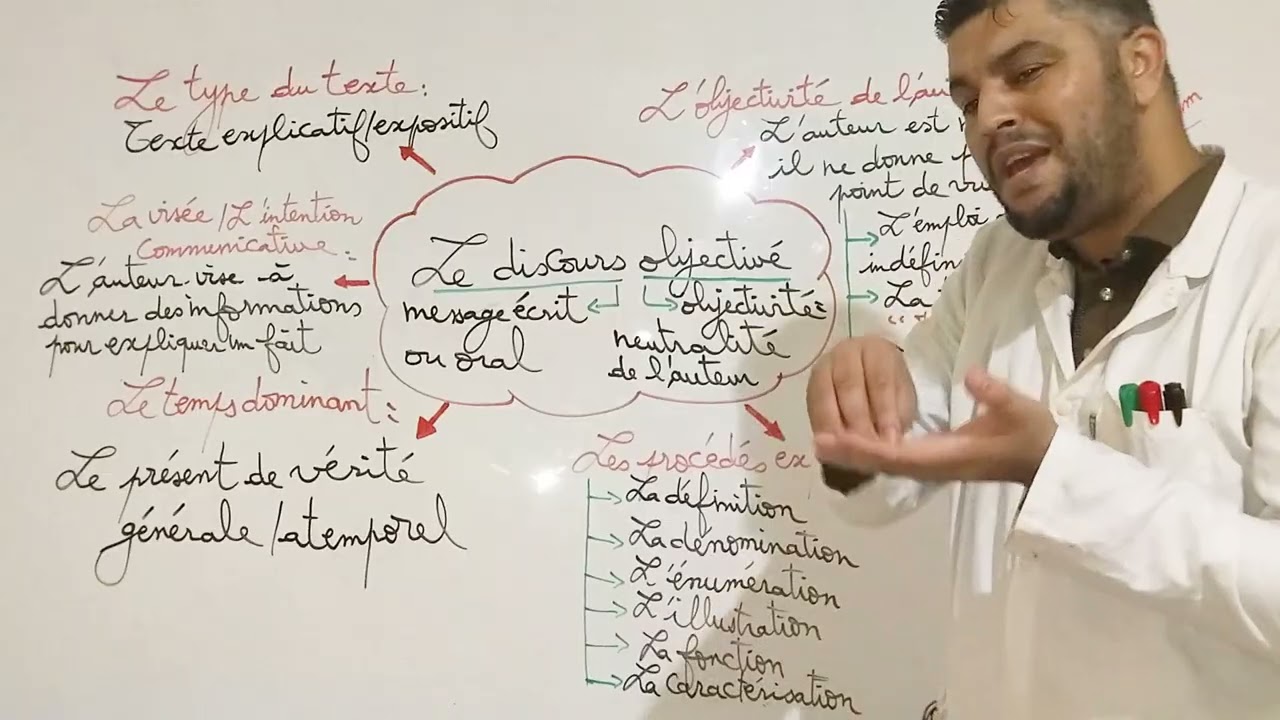 Le type du texte :
Texte explicatif/expositif
La visée/L'intention
Communicative :
L'auteur vise à
donner des informations
pour expliquer un fait
Le temps dominant :
Le présent de vérité
générale/atemporel
Le discours objectivé
message écrit
ou oral
objectivité =
neutralité
de l'auteur
L'objectivité de l'au
L'auteur est
il ne donne
point de vu
L'emploi
indéfin
La
Les procédés ex
La définition
La dénomination
L'énumération
L'illustration
La fonction
La caractérisation